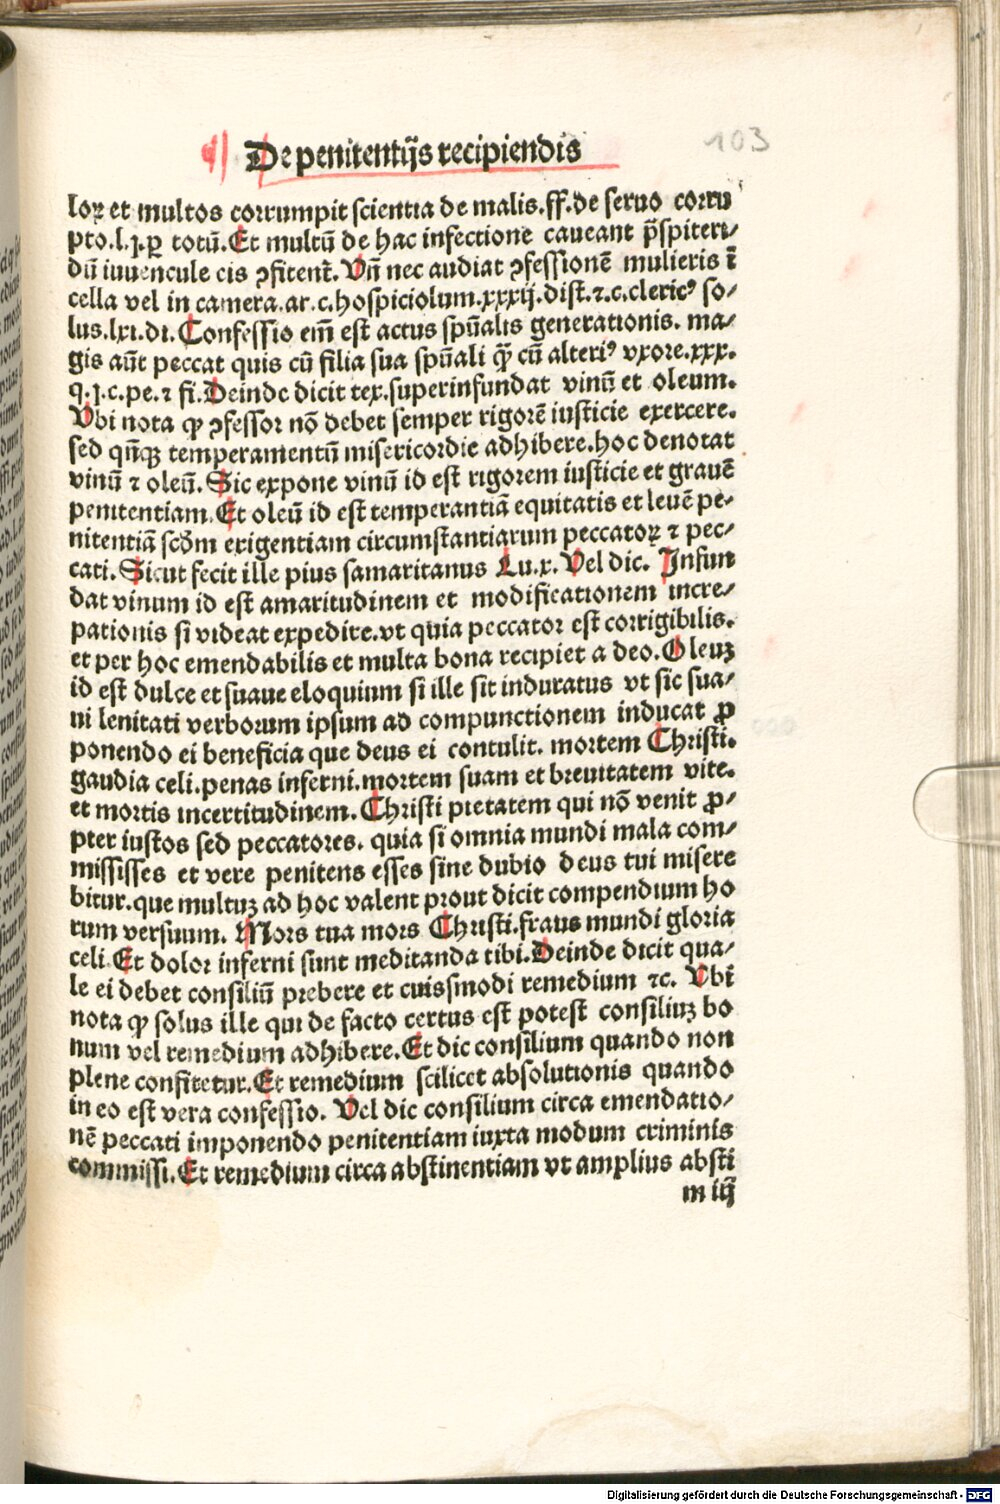 De penitentijs recipiendis
103
loꝝ et multos corrumpit scientia de malis.ff.de seruo corru
pto.l.j.ꝑ totū.Et multū de hac infectione caueant p̄spiteri⸗
dū iuuencule eis ꝯfitent᷑.Vn̄ nec audiat ꝯfessionē mulieris ī
cella vel in camera.ar.c.hospiciolum.xxxij.dist.⁊.c.cleric⁹ so⸗
lus.lxi.di.Confessio em̄ est actus spūalis generationis. ma⸗
gis aūt peccat quis cū filia sua spūali q̄ꝫ cū alteri⁹ vxore.xxx.
q.j.c.pe.⁊ fi.Deinde dicit tex.superinfundat vinū et oleum.
Vbi nota ꝙ ꝯfessor nō debet semper rigorē iusticie exercere.
sed qn̄qꝫ temperamentū misericordie adhibere.hoc denotat
vinū ⁊ oleū.Sic expone vinū id est rigorem iusticie et grauē
penitentiam.Et oleū id est temperantiā equitatis et leuē pe⸗
nitentiā scd̄m exigentiam circumstantiarum peccatoꝝ ⁊ pec⸗
cati.Sicut fecit ille pius samaritanus Lu.x.Vel dic. Infun
dat vinum id est amaritudinem et modificationem incre⸗
pationis si videat expedire.vt quia peccator est corrigibilis.
et per hoc emendabilis et multa bona recipiet a deo.Oleuꝫ
id est dulce et suaue eloquium si ille sit induratus vt sic sua⸗
ui lenitati verborum ipsum ad compunctionem inducat ꝓ
ponendo ei beneficia que deus ei contulit. mortem Christi.
gaudia celi.penas inferni.mortem suam et breuitatem vite.
et mortis incertitudinem.Christi pietatem qui nō venit ꝓ⸗
pter iustos sed peccatores. quia si omnia mundi mala com⸗
misisses et vere penitens esses sine dubio deus tui misere
bitur.que multuꝫ ad hoc valent prout dicit compendium ho
rum versuum. Mors tua mors Christi.fraus mundi gloria
celi.Et dolor inferni sunt meditanda tibi.Deinde dicit qua⸗
le ei debet consiliū prebere et cuiusmodi remedium ⁊c. Vbi
nota ꝙ solus ille qui de facto certus est potest consiliuꝫ bo
num vel remedium adhibere.Et dic consilium quando non
plene confitetur.Et remedium scilicet absolutionis quando
in eo est vera confessio. Vel dic consilium circa emendatio⸗
nē peccati imponendo penitentiam iuxta modum criminis
commissi.Et remedium circa abstinentiam vt amplius absti
m iij
Digitalisierung gefördert durch die Deutsche Forschungsgemeinschaft - DFG